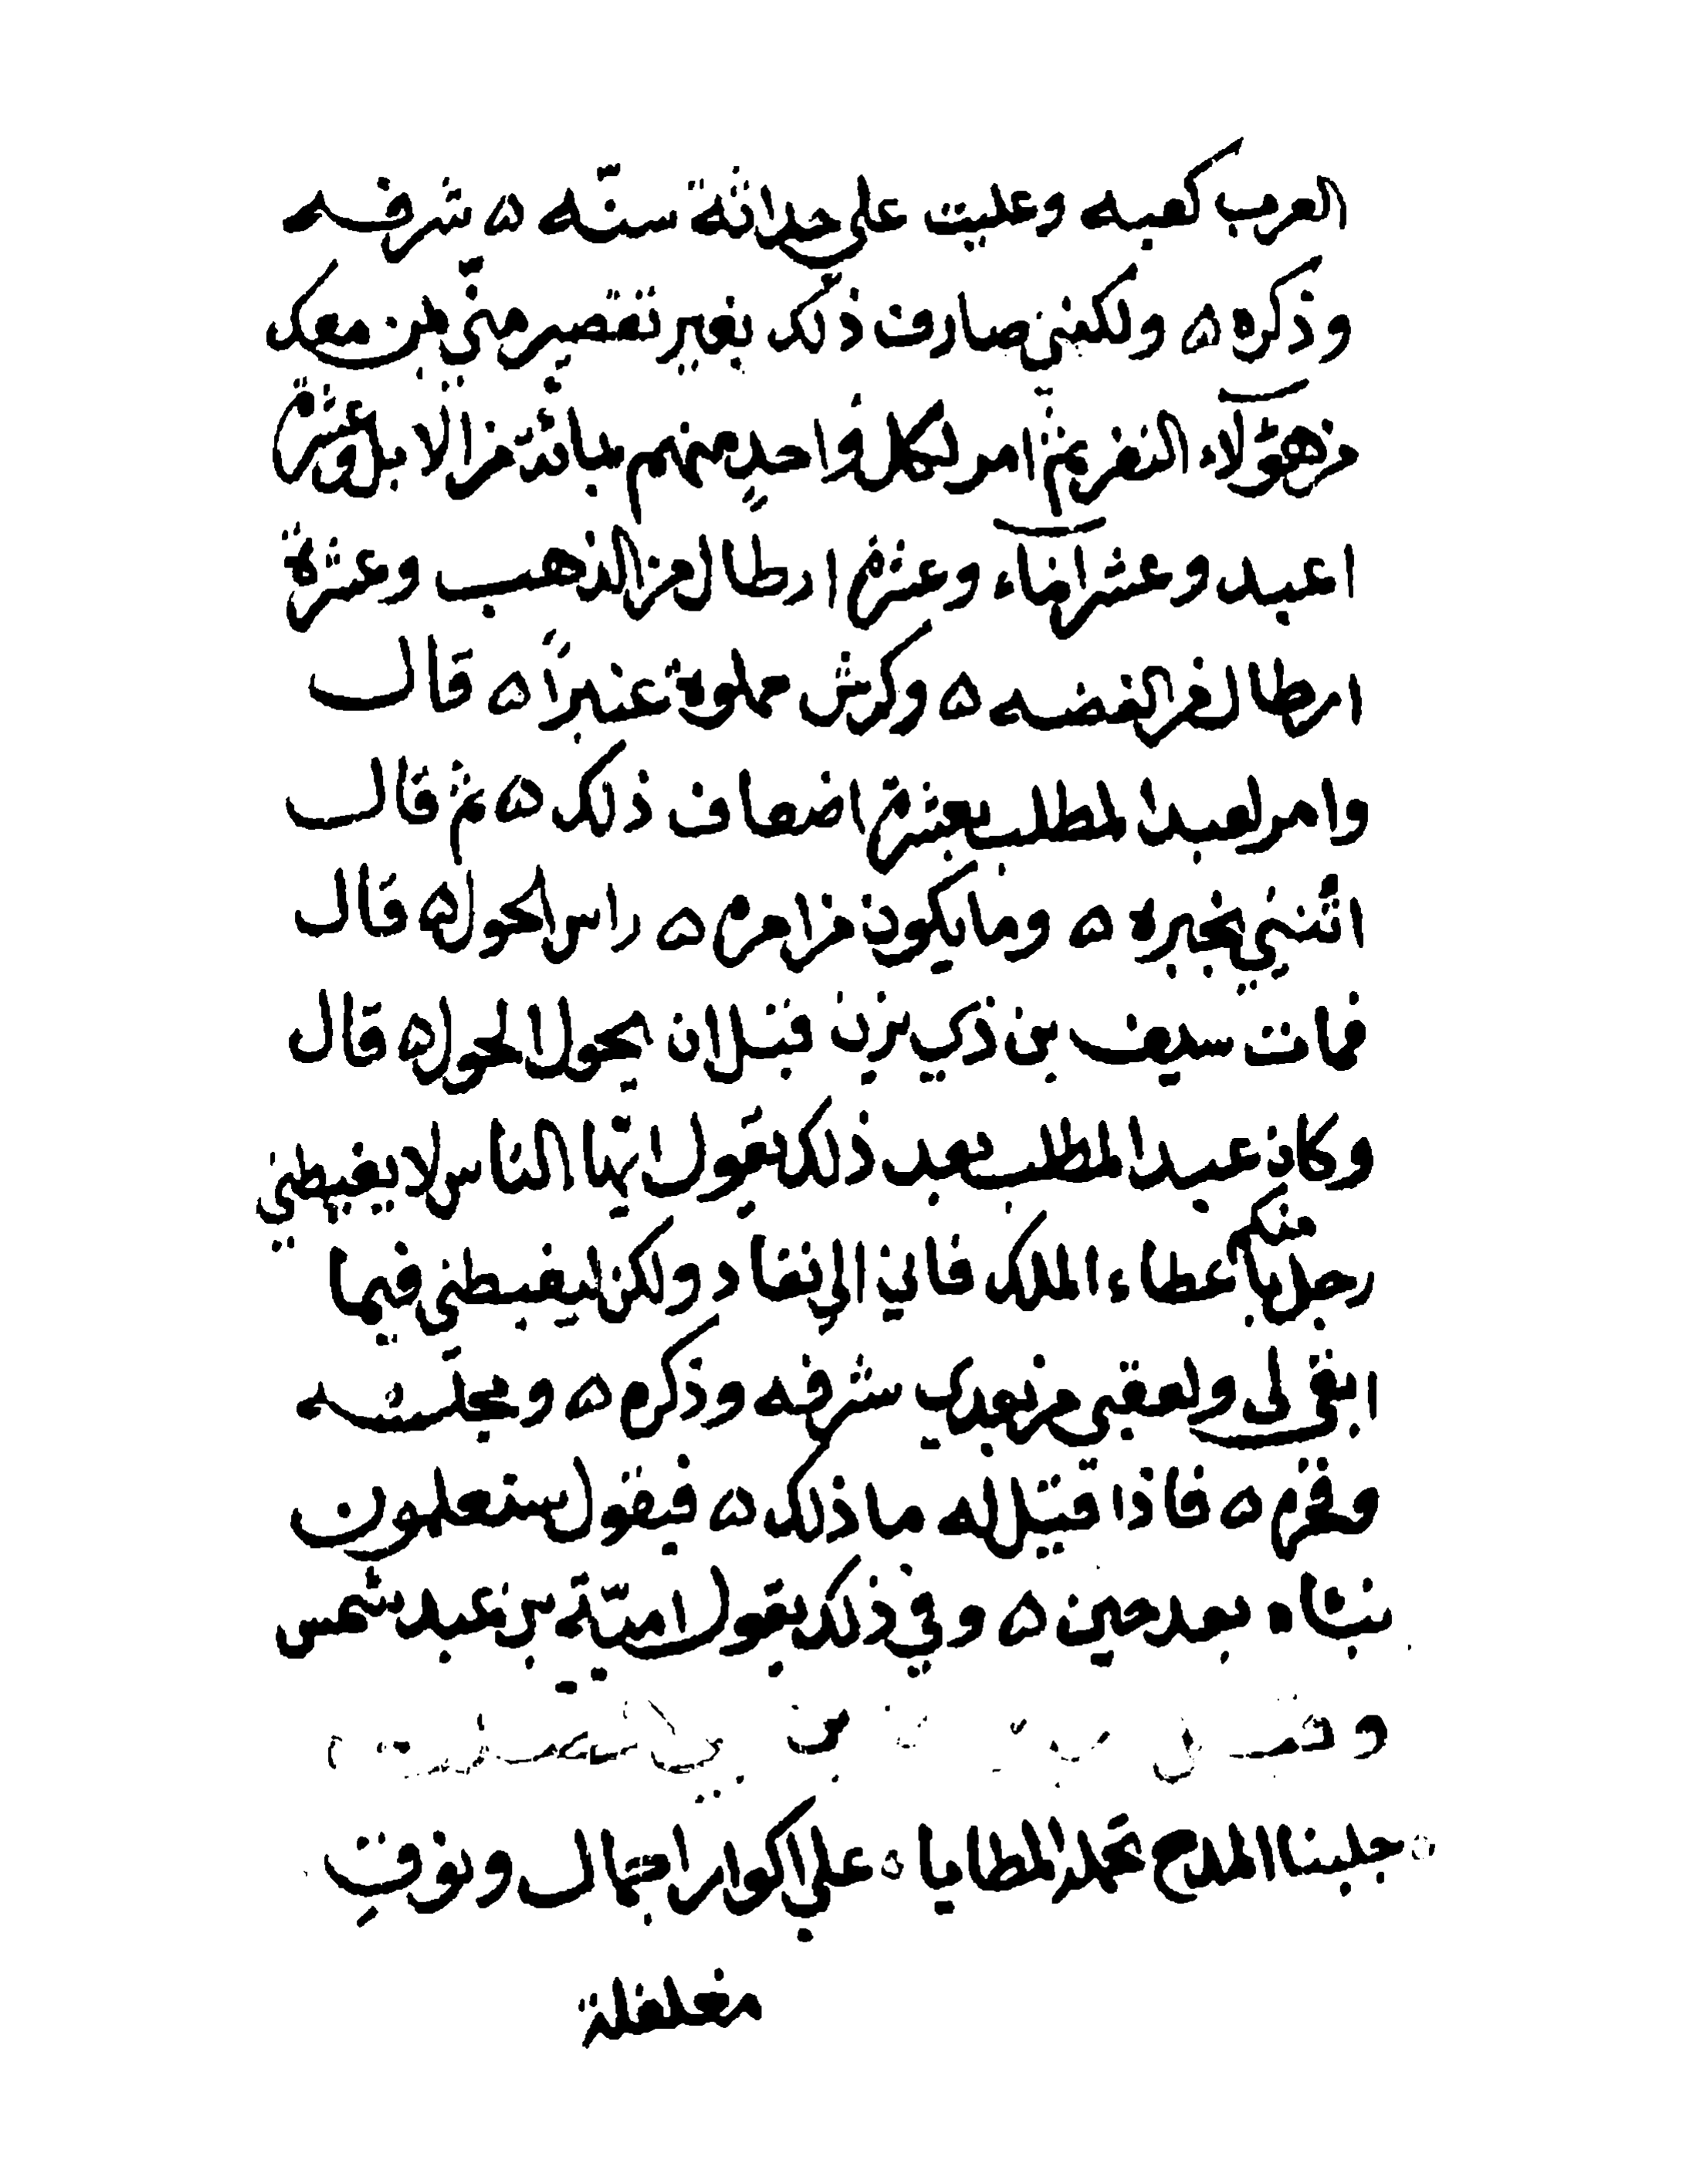 العرب كعبه وعليت على حداثة سنّه ۵ شرفه
وذكره ۵ ولكننى صارف ذلك بغير تقصير منّي بمن معك
من هؤلاء النفر ثم امر لكل واحدٍ منهم بمائة من الابل وعشرة
اعبد وعشر اماء وعشرة ارطال من الذهب وعشرة
ارطال من الفضه ۵ وكرش مملوة عنبراً ۵ قال
وامر لعبد المطلب بعشرة اضعاف ذلك ۵ ثم قال
ائتني بخبره ۵ وما يكون من امره ۵ راس الحول ۵ قال
فمات سيف بن ذي يزن قبل ان يحول الحول ۵ قال
وكان عبد المطلب بعد ذلك يقول ايّها الناس لا يغبطني
رجل منكم باعطاء الملك فاني الى نفاد ولكن ليغبطني فيما
ابقى لى ولعقبي من بعدي شرفه وذكره ۵ ومجلسه
وفخره ۵ فاذا قيل له ما ذلك ۵ فيقول ستعلمون
نباه بعد حين ۵ وفي ذلك يقول اميّة بن عبد شمس
جلبنا المدح تحمله المطايا ۵ علي اكوار اجمال ونوقِ
مغلغلة